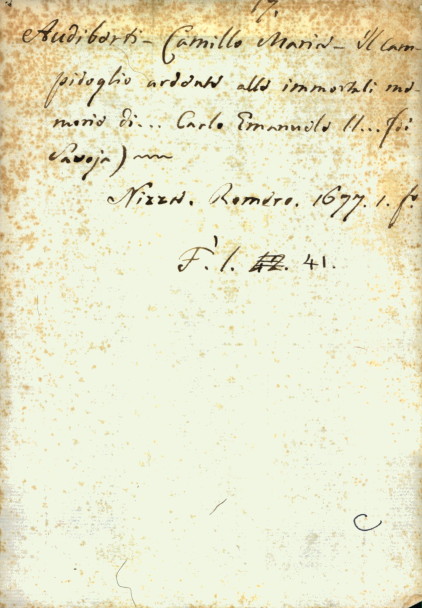 17.
Audiberti - Camillo Maria - Il Cam-
pidoglio ardente alle immortali me-
morie di... Carlo Emanuele II... (di
Savoja)
Nizza. Romero. 1677. 1. fo
F. l. 42. 41.
C